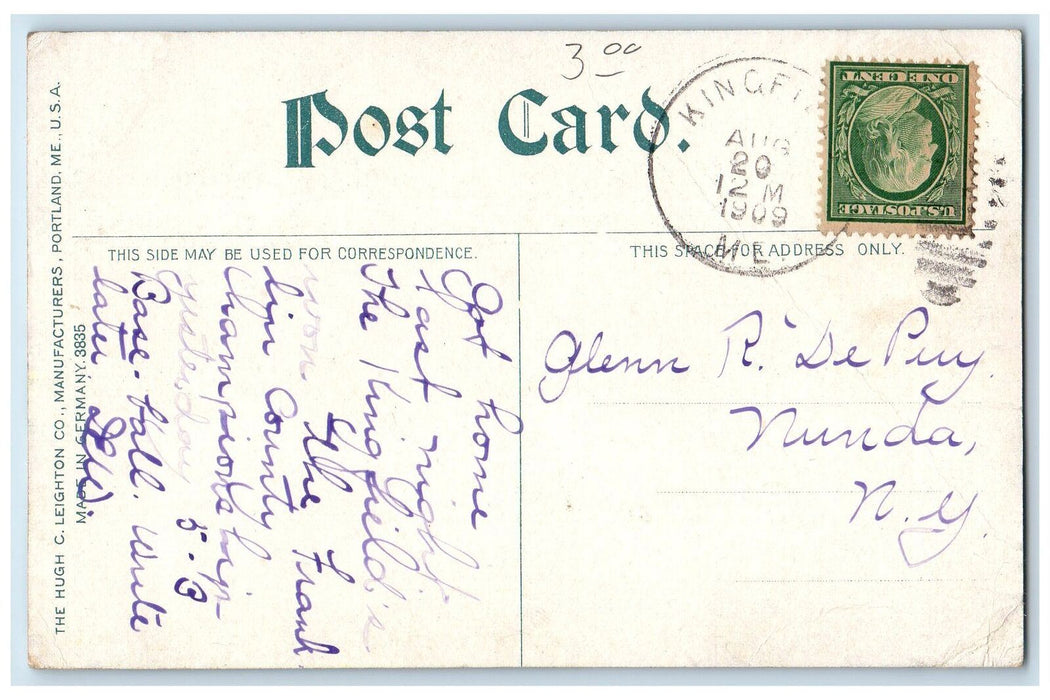 3 00
Post Card.
KINGFI
AUG
20
12 M
1909
ME
ONE CENT
U.S. POSTAGE
THIS SIDE MAY BE USED FOR CORRESPONDENCE.
THIS SPACE FOR ADDRESS ONLY.
Got home
last night.
The Kingfield's
won the Frank
lin County
Championship
yesterday 5-3
Base-ball. Write
later
Glenn R. De Puy.
Nunda,
N.Y.
THE HUGH C. LEIGHTON CO., MANUFACTURERS, PORTLAND, ME., U.S.A.
MADE IN GERMANY. 3835